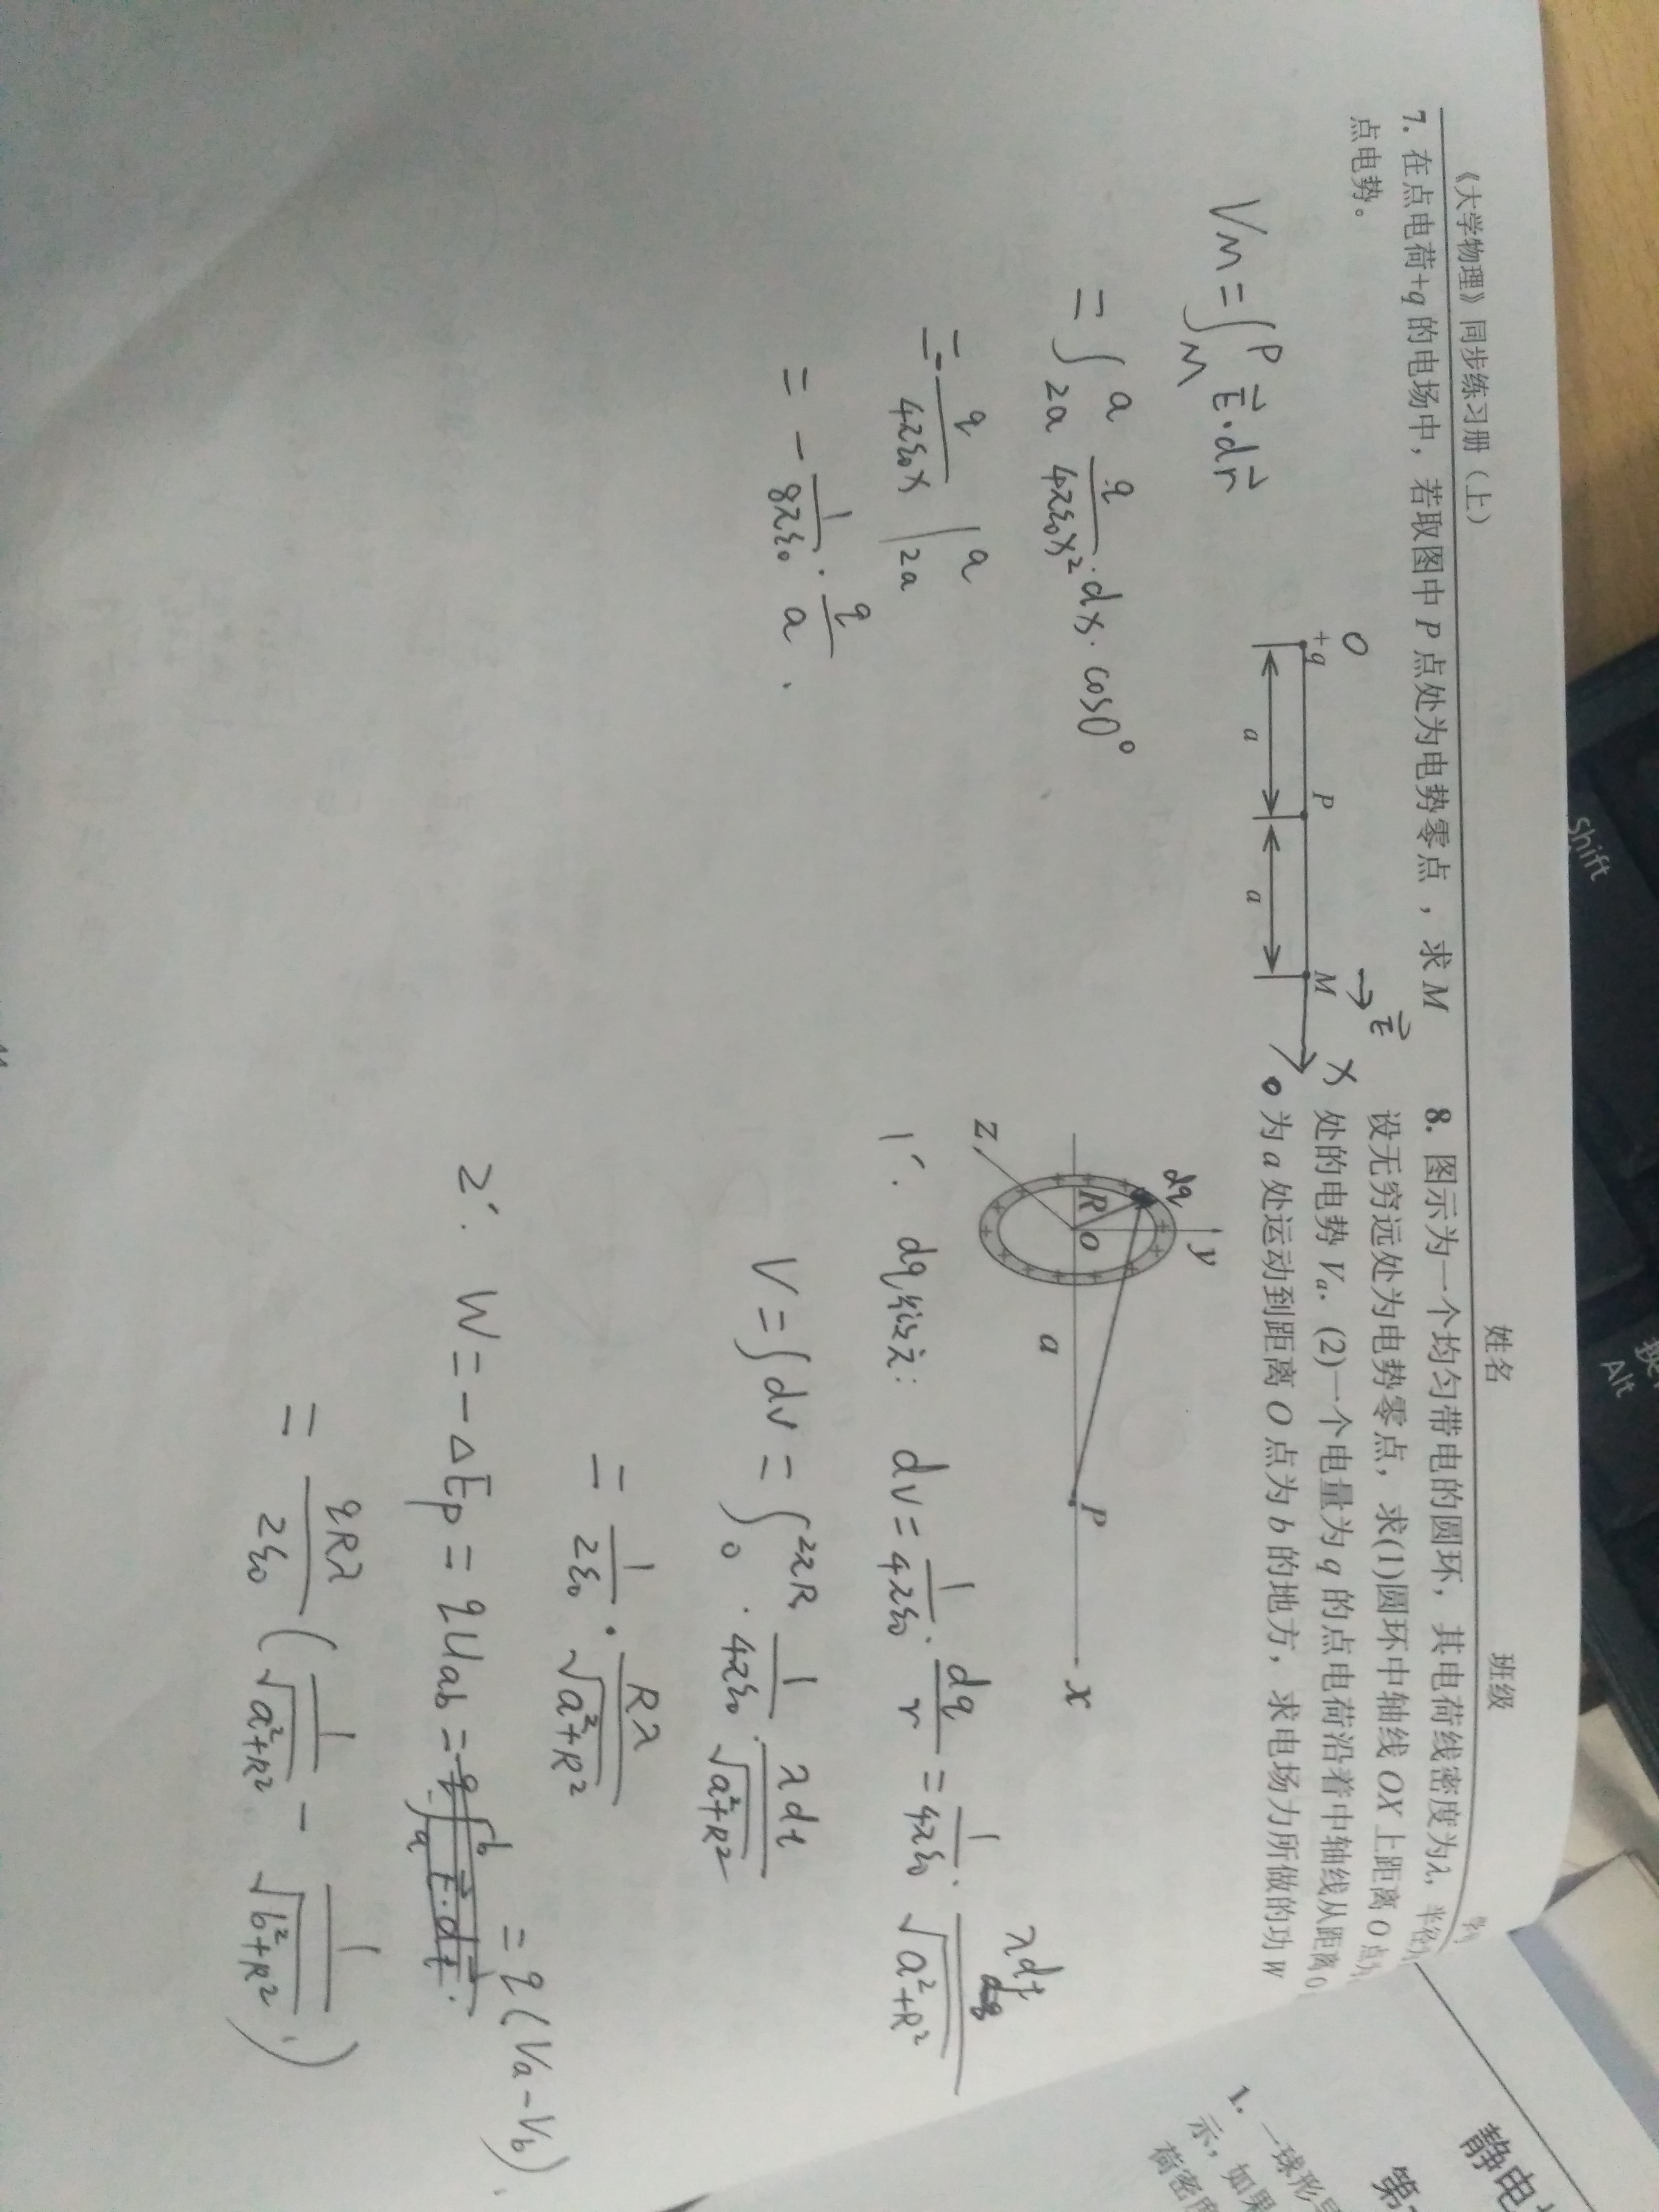 《大学物理》同步练习册（上）
姓名
班级
7. 在点电荷+q 的电场中，若取图中 P 点处为电势零点，求 M
点电势。
O
+q
P
M
E⃗
X
a
a
V_M = ∫_M^P E⃗·dr⃗
= ∫_{2a}^{a} q/(4πε₀x²)·dx·cos0°
= -q/(4πε₀x) |_{2a}^{a}
= - 1/(8πε₀) · q/a .
8. 图示为一个均匀带电的圆环，其电荷线密度为λ, 半径为
设无穷远处为电势零点，求(1)圆环中轴线 OX 上距离 O 点为
处的电势 Vₐ. (2)一个电量为 q 的点电荷沿着中轴线从距离 O
为 a 处运动到距离 O 点为 b 的地方，求电场力所做的功 W
dq
y
R
O
z
a
P
x
1'. dq dv = 1/(4πε₀) · dq/r = 1/(4πε₀) · λdl/√(a²+R²)
V = ∫dv = ∫_0^{2πR} · 1/(4πε₀) · λdl/√(a²+R²)
= 1/(2ε₀) · Rλ/√(a²+R²)
2'. W = -ΔEp = qUab = q∫_a^b E⃗·dl⃗. = q(Va-Vb).
= qRλ/(2ε₀) (1/√(a²+R²) - 1/√(b²+R²))
静电
第
1. 一球形导
示，如果
荷密度
Shift
换
Alt